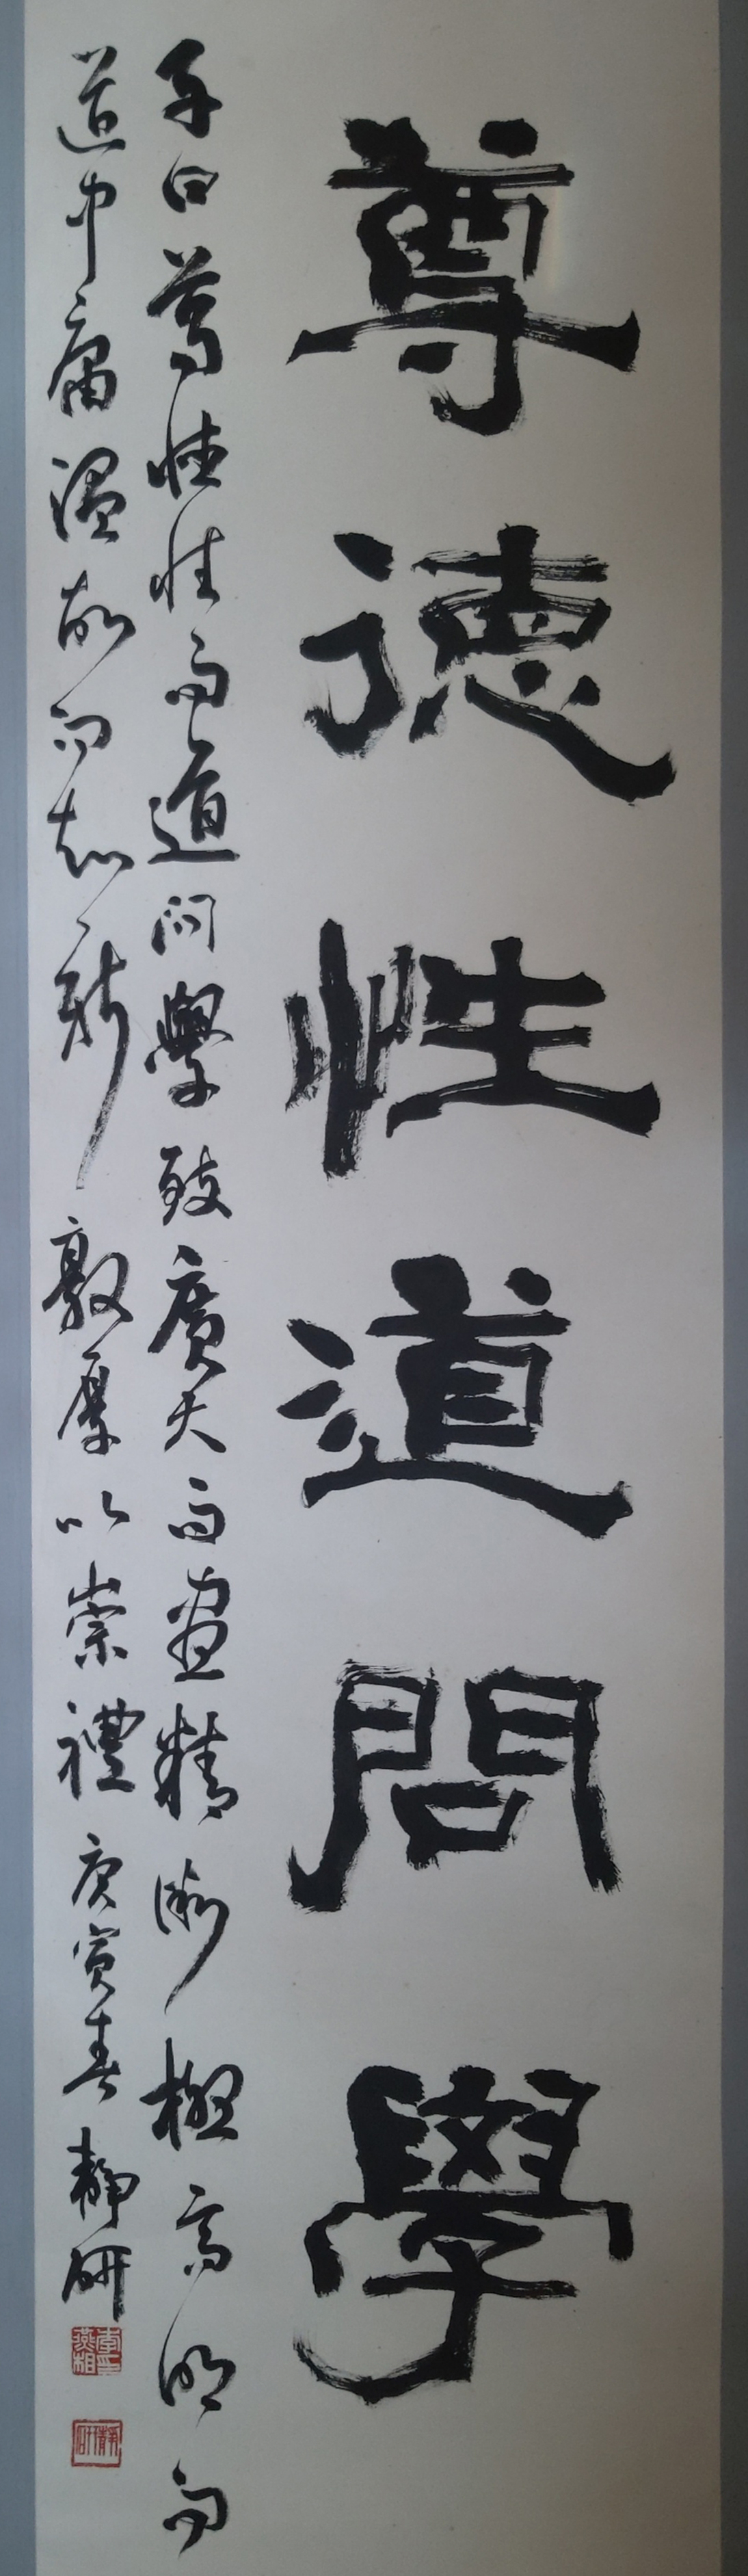 尊德性道問學
子曰尊德性而道問學致廣大而盡精微極高明而
道中庸溫故而知新敦厚以崇禮庚寅春靜研
李印燕相
靜研